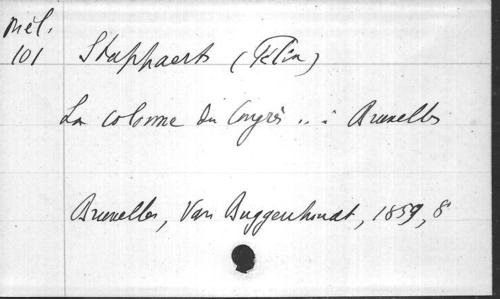 Mél.
101
Stappaerts (Félix)
La colonne du Congrès .. à Bruxelles
Bruxelles, Van Buggenhoudt, 1859, 8°